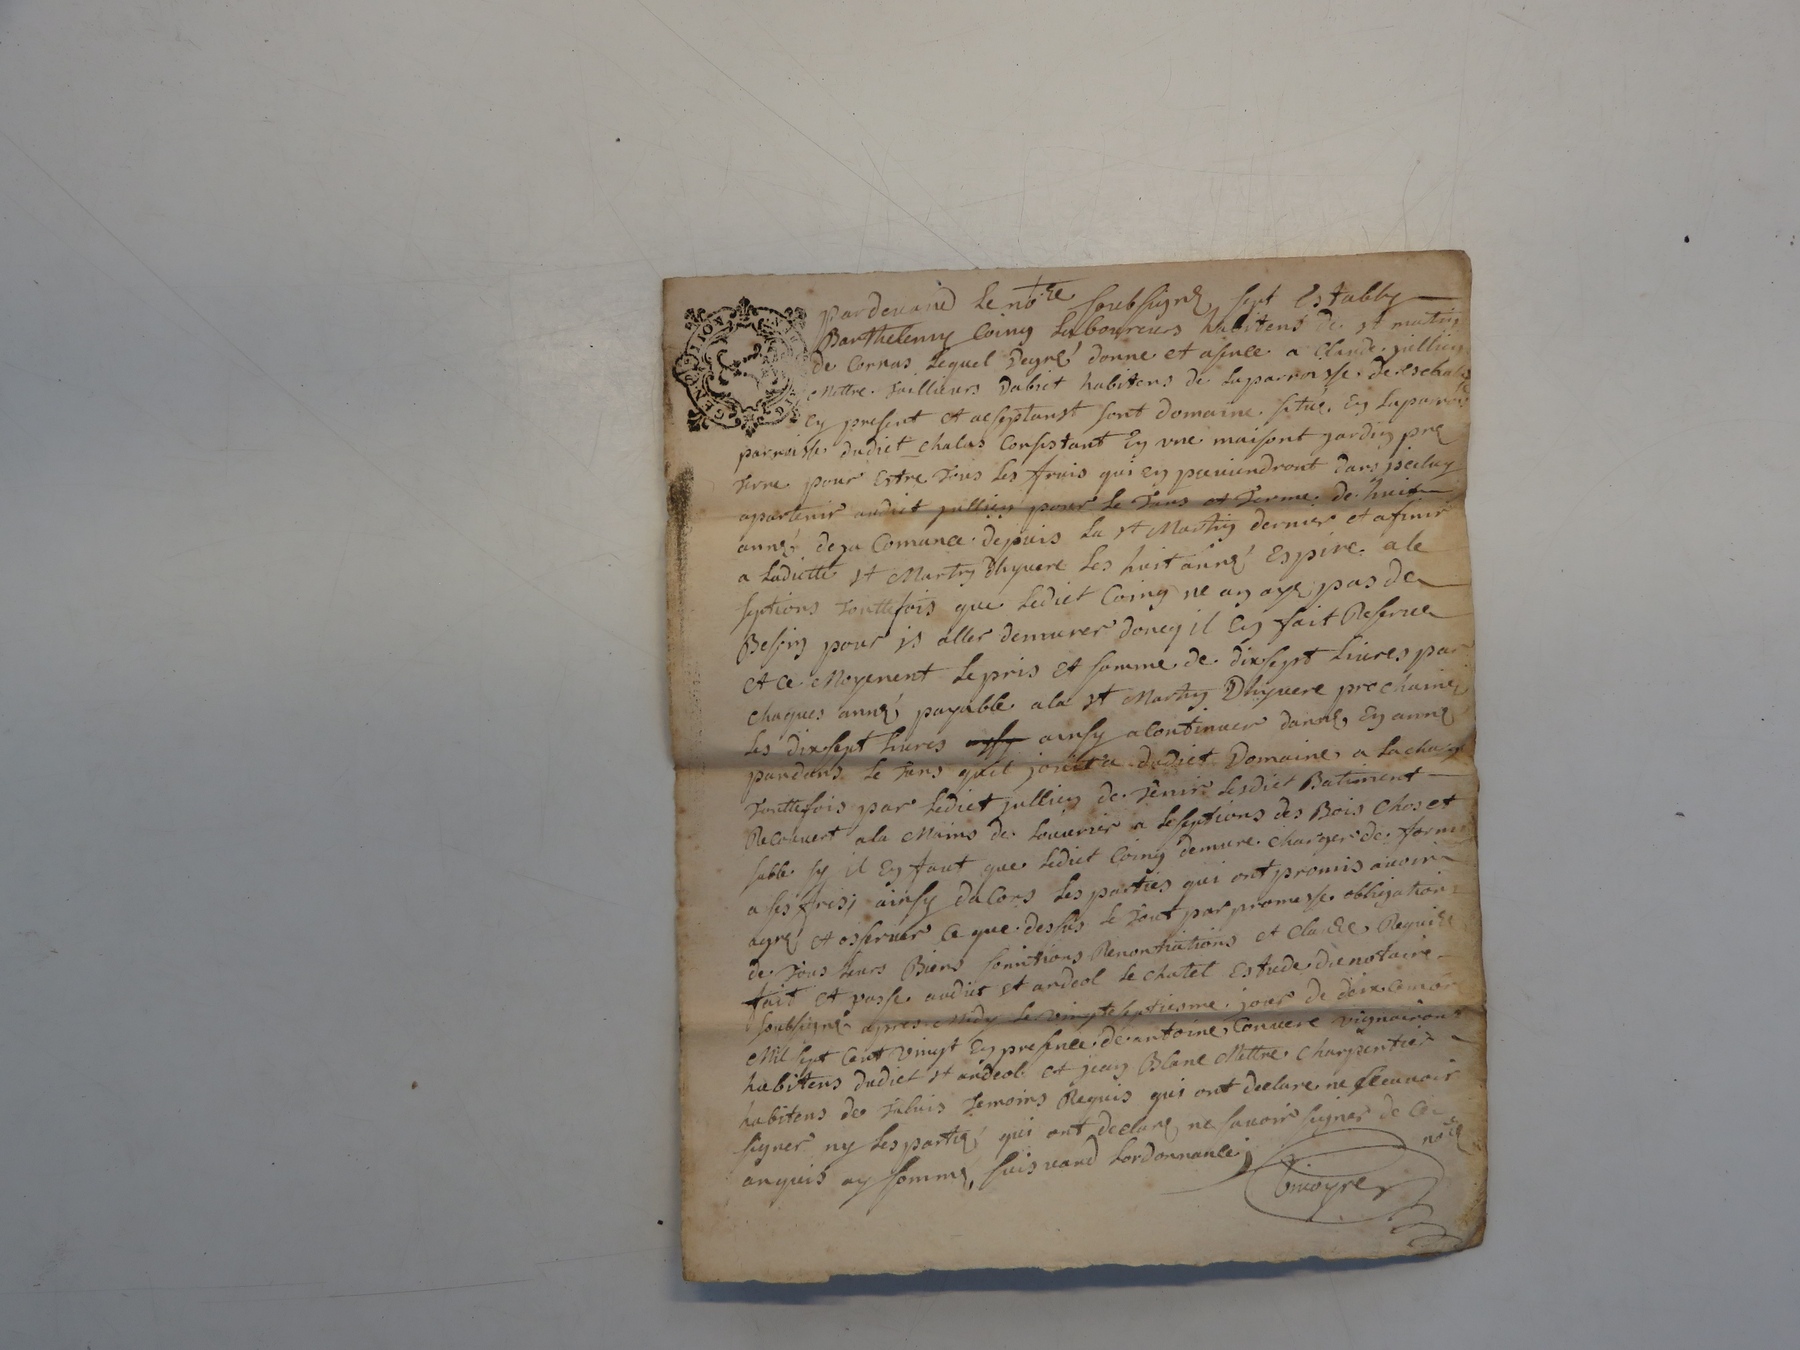 pardevand Le no.re soubsigné sept Establly
Barthelemy Coing Laboureurs habitens de st martin
de Cornas Lequel Degré donne et afence a Claude jullien
Mettre tailleurs Dabict habitens de La parroisse de eschalas
Ey present et acseptanst sont domaine situé Ey La parroi
parroisse dudict chalas Consistant Ey vne maisont jardin pré
terre pour Estre tous Les fruis qui Ey prouiendront dans iseluy
apartenir audict jullien pour Le tans et terme de huict
anné deja Comance depuis La st Martin dernier et a finir
a Ladicte st Martin Dhyuere Les huit anné Espire a le
septions touttefois que Ledict Coing ne ay aye pas de
Besoin pour is aller demurer doncq il Ey fait Reserue
et ce Moyenent Le pris et somme de dixsept Liures par
chaques anné payable a la st Martin Dhyuere prochaine
Les dixsept Liures ainsy a Continuer danné Ey anné
pandans Le tans quil jouira dudict Domaine a La charge
touttefois par Ledict jullien de tenir Lesdict Batiment
Recouuert a la Mains de Louurier a Leseptions des Bois Chos et
sable sy il Ey faut que Ledict Coing demure charger de forni
a ses fris, ainsy dacors Les parties qui ont promis auoir
agré et osseruer Ce que dessus Le tout par promesse obligation
de tous Leurs Biens somitions Renontiations et Clause Requise
fait et passe audict st andeol Le chatel Estude du notaire
soubsigné apres Midy Le vingt septiesme jour de deixcembre
Mil sept Cent vingt Ey presence de antoine Conuere vigneirons
habitens dudict st andeol et jean Blanc Mettre charpentier
habitens de taluis temoins Requis qui ont declare ne sceauoir
signer ny Les partié qui ont declaré ne sauoir signer de Ce
anquis ey sommé, suis vand Lordonnance
no.re